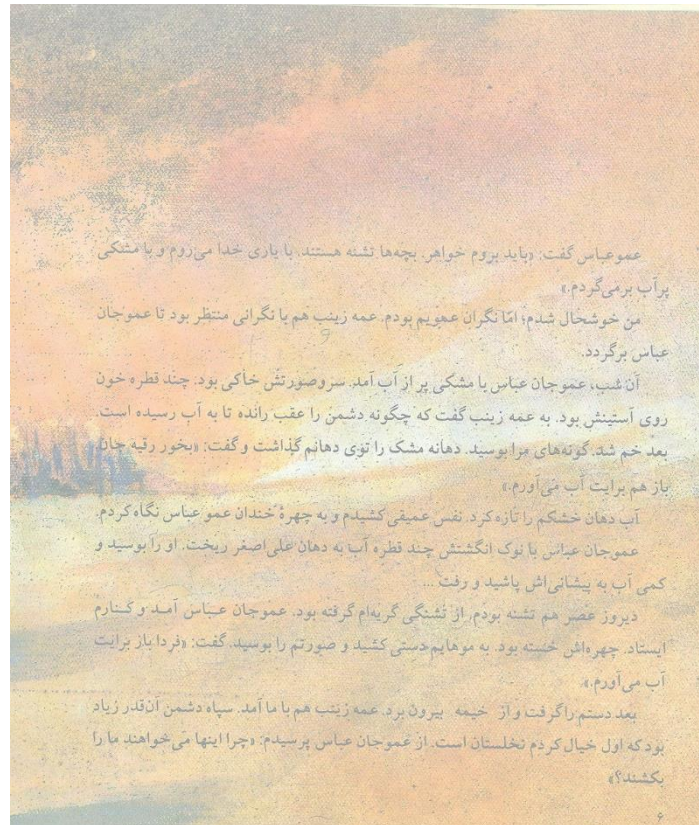 عموعباس گفت: «باید بروم خواهر. بچه‌ها تشنه هستند. با یاری خدا می‌روم و با مشکی
پرآب برمی‌گردم.»
من خوشحال شدم؛ امّا نگران عمویم بودم. عمه زینب هم با نگرانی منتظر بود تا عموجان
عباس برگردد.
آن شب، عموجان عباس با مشکی پر از آب آمد. سروصورتش خاکی بود. چند قطره خون
روی آستینش بود. به عمه زینب گفت که چگونه دشمن را عقب رانده تا به آب رسیده است.
بعد خم شد. گونه‌های مرا بوسید. دهانه مشک را توی دهانم گذاشت و گفت: «بخور رقیه جان
باز هم برایت آب می‌آورم.»
آب دهان خشکم را تازه کرد. نفس عمیقی کشیدم و به چهرهٔ خندان عمو عباس نگاه کردم.
عموجان عباس با نوک انگشتش چند قطره آب به دهان علی‌اصغر ریخت. او را بوسید و
کمی آب به پیشانی‌اش پاشید و رفت ...
دیروز عصر هم تشنه بودم. از تشنگی گریه‌ام گرفته بود. عموجان عباس آمد و کنارم
ایستاد. چهره‌اش خسته بود. به موهایم دستی کشید و صورتم را بوسید. گفت: «فردا باز برایت
آب می‌آورم.»
بعد دستم را گرفت و از خیمه بیرون برد. عمه زینب هم با ما آمد. سپاه دشمن آن‌قدر زیاد
بود که اول خیال کردم نخلستان است. از عموجان عباس پرسیدم: «چرا اینها می‌خواهند ما را
بکشند؟»
۶